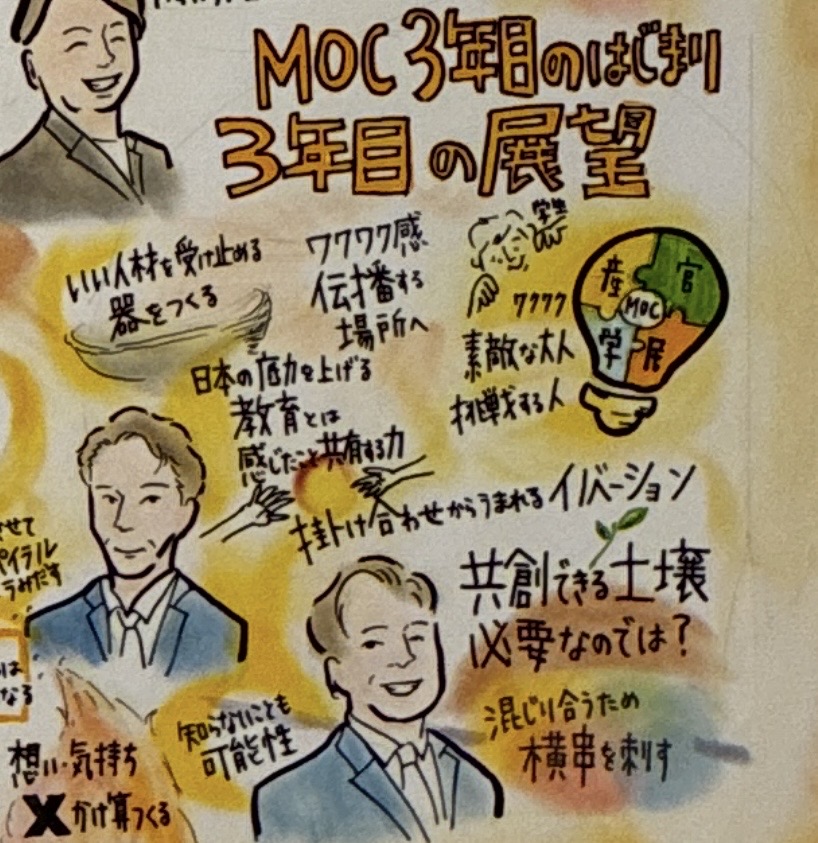 MOC 3年目のはじまり
3年目の展望
いい人材を受け止める
器をつくる
ワクワク感
伝播する
場所へ
学生
ワクワク
素敵な大人
挑戦する人
産
官
MOC
学
民
日本の底力を上げる
教育とは
感じたこと共有する力
掛け合わせからうまれるイノベーション
共創できる土壌
必要なのでは?
させて
パイラル
うみだす
は
なる
知らないことも
可能性
混じり合うため
横串を刺す
想い・気持ち
×かけ算つくる